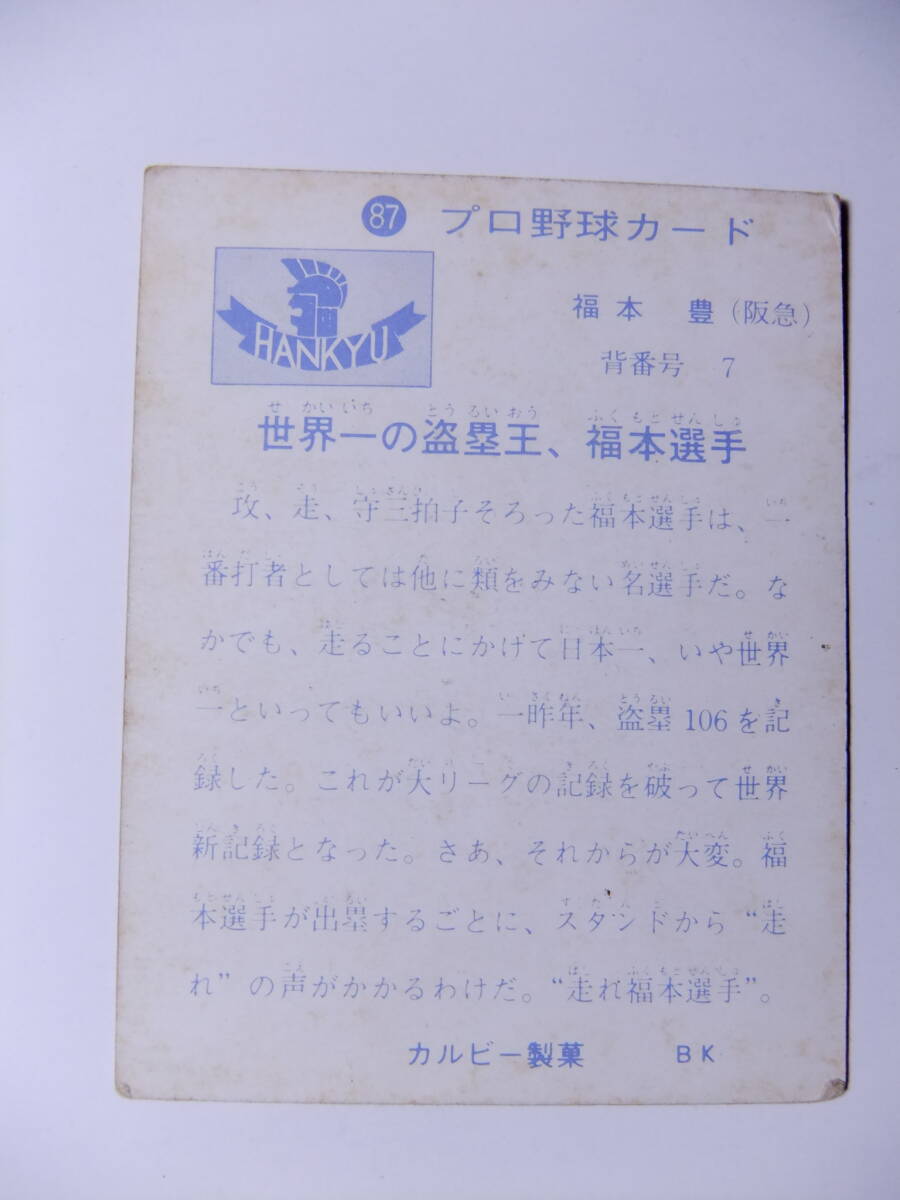 87 プロ野球カード
HANKYU
福本 豊(阪急)
背番号 7
世界一の盗塁王、福本選手
攻、走、守三拍子そろった福本選手は、一
番打者としては他に類をみない名選手だ。な
かでも、走ることにかけて日本一、いや世界
一といってもいいよ。一昨年、盗塁106を記
録した。これが大リーグの記録を破って世界
新記録となった。さあ、それからが大変。福
本選手が出塁するごとに、スタンドから“走
れ”の声がかかるわけだ。“走れ福本選手”。
カルビー製菓 BK